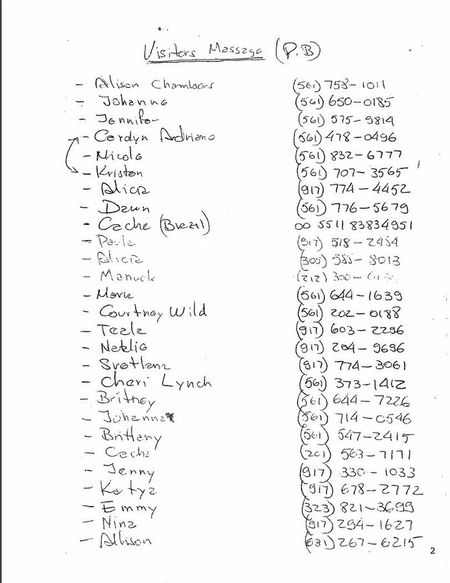 Visitors Massage (P.B)
- Alison Chambers (561) 758-1011
- Johanna (561) 650-0185
- Jennifer (561) 575-9814
- Carolyn Adriano (561) 478-0496
- Nicole (561) 832-6777
- Kristen (561) 707-3565
- Alicia (917) 774-4452
- Dawn (561) 776-5679
- Cache (Brezil) 00 5511 83834951
- Paula (917) 518-2484
- Alicia (305) 8013
- Manuela (212)
- Marie (561) 644-1639
- Courtney Wild (561) 202-0188
- Teala (917) 603-2296
- Natalia (917) 204-9696
- Svetlana (917) 774-3061
- Cheri Lynch (561) 373-1412
- Britney (561) 644-7226
- Johanna (561) 714-0546
- Brittany (561) 547-2415
- Cache (201) 563-7171
- Jenny (917) 330-1033
- Katya (917) 678-2772
- Emmy (323) 821-3699
- Nina (917) 294-1627
- Allison (631) 267-6215
2